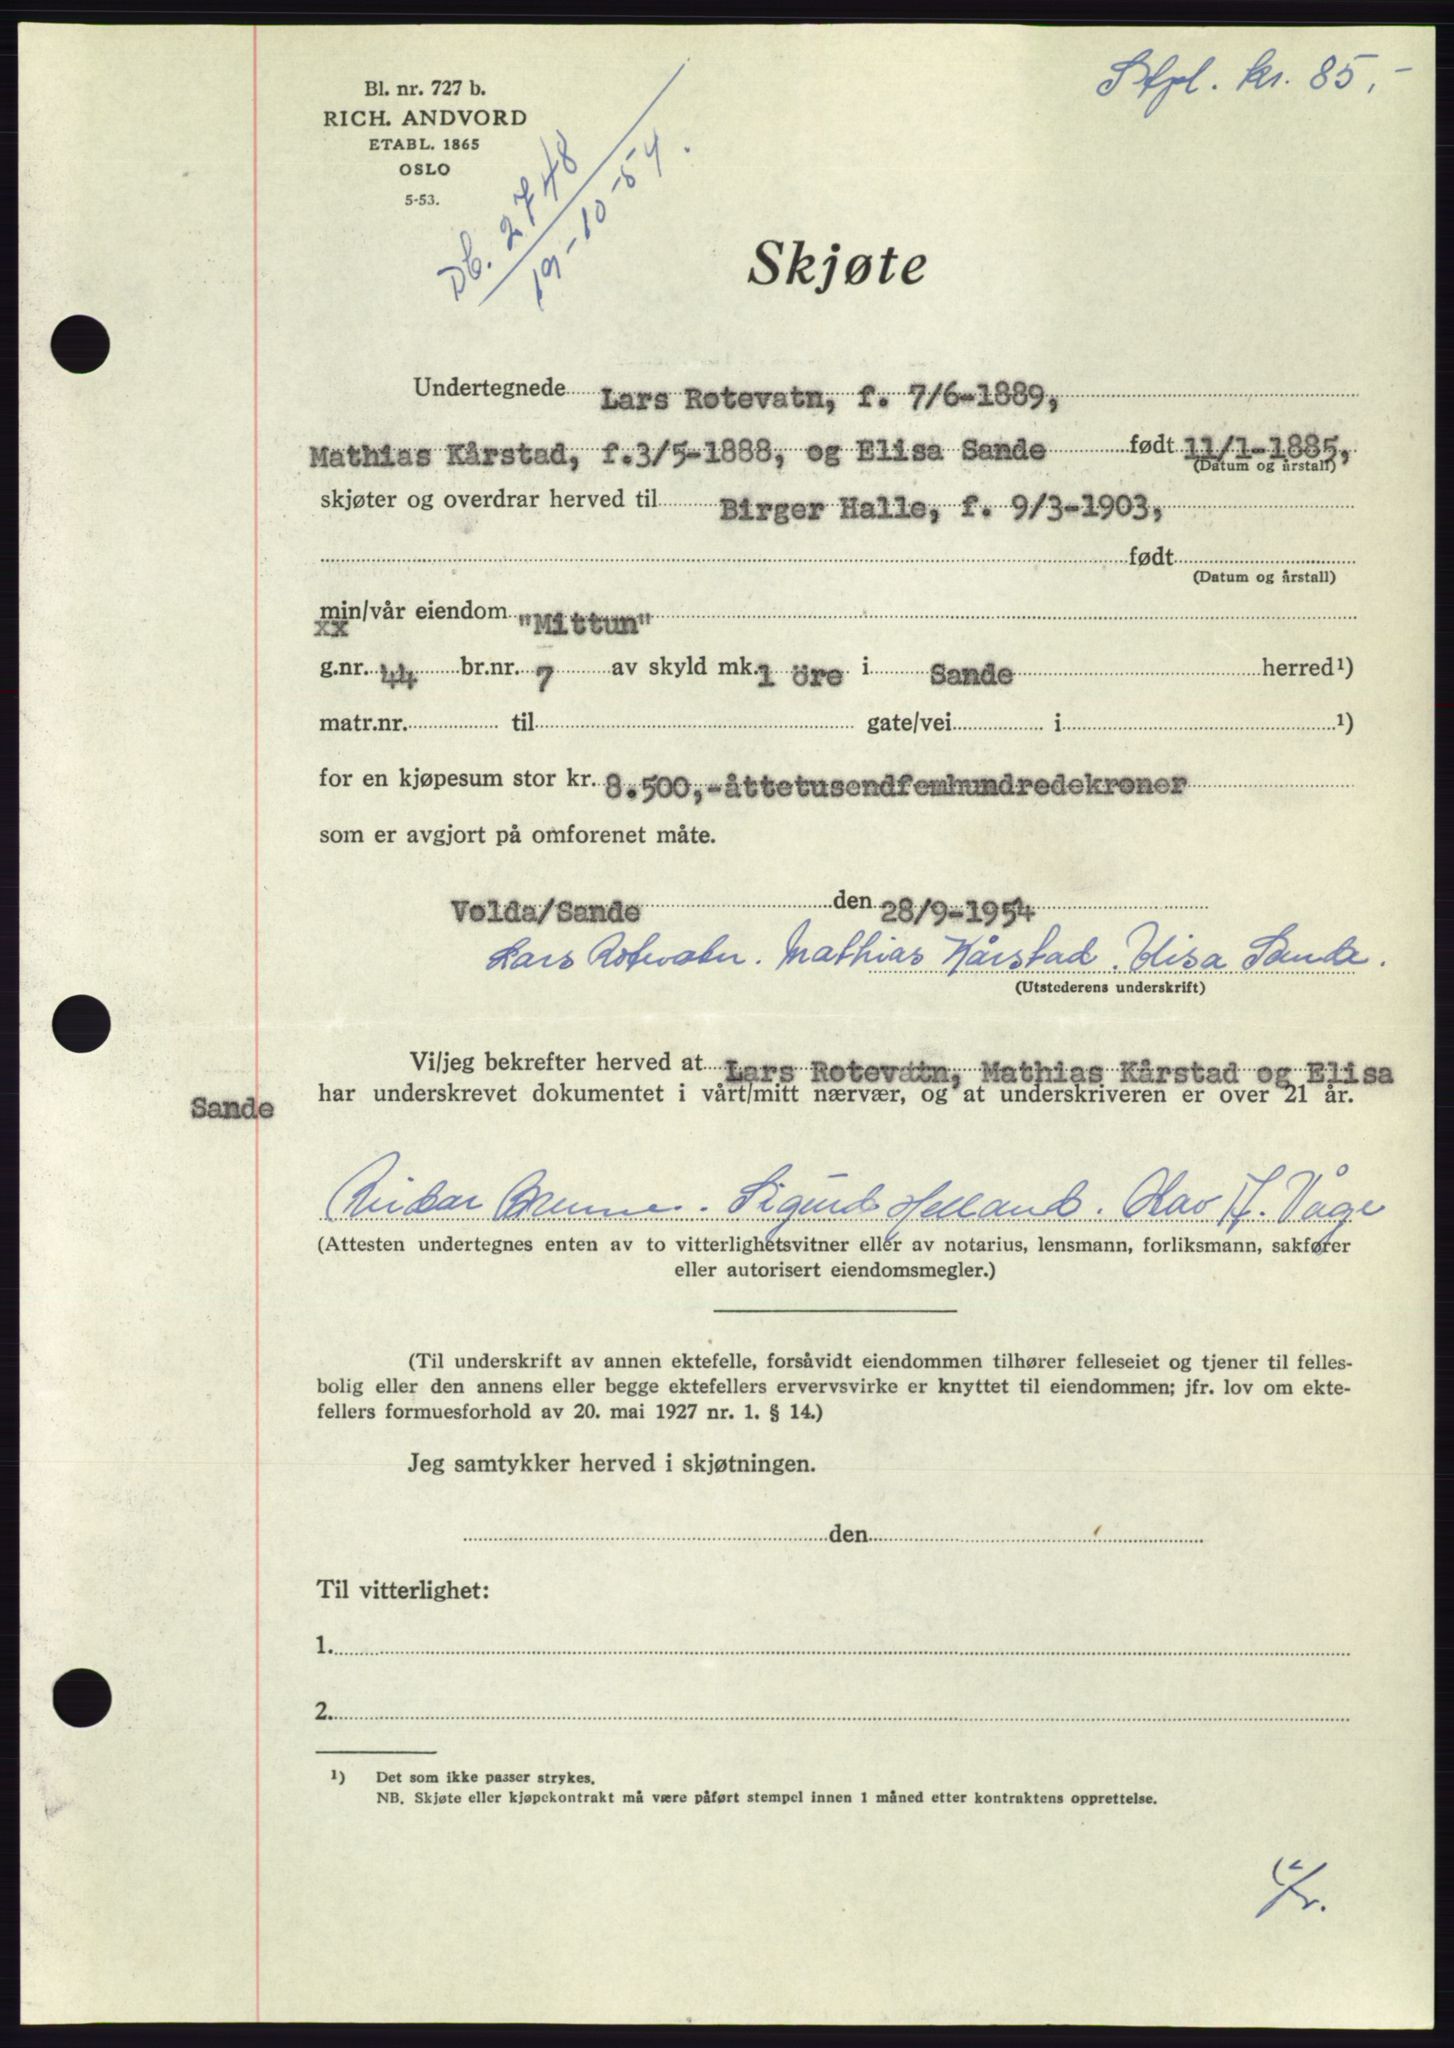 Stpl. kr. 85,-
Bl. nr. 727 b.
RICH. ANDVORD
ETABL. 1865
OSLO
5-53.
Db. 2748
19-10-54.
Skjøte
Undertegnede Lars Rotevatn, f. 7/6-1889,
Mathias Kårstad, f.3/5-1888, og Elisa Sande født 11/1-1885,
(Datum og årstall)
skjøter og overdrar herved til Birger Halle, f. 9/3-1903,
født
(Datum og årstall)
min/vår eiendom "Mittun"
xx
g.nr. 44 br.nr. 7 av skyld mk. 1 öre i Sande herred 1)
matr.nr. til gate/vei i 1)
for en kjøpesum stor kr. 8.500,-åttetusendfemhundredekroner
som er avgjort på omforenet måte.
Volda/Sande den 28/9-1954
Lars Rotevatn. Mathias Kårstad. Elisa Sande.
(Utstederens underskrift)
Vi/jeg bekrefter herved at Lars Rotevatn, Mathias Kårstad og Elisa
Sande har underskrevet dokumentet i vårt/mitt nærvær, og at underskriveren er over 21 år.
Reidar . Sigurd Helland. Olav H. Våge
(Attesten undertegnes enten av to vitterlighetsvitner eller av notarius, lensmann, forliksmann, sakfører
eller autorisert eiendomsmegler.)
(Til underskrift av annen ektefelle, forsåvidt eiendommen tilhører felleseiet og tjener til felles-
bolig eller den annens eller begge ektefellers ervervsvirke er knyttet til eiendommen; jfr. lov om ekte-
fellers formuesforhold av 20. mai 1927 nr. 1. § 14.)
Jeg samtykker herved i skjøtningen.
den
Til vitterlighet:
1.
2.
1) Det som ikke passer strykes.
NB. Skjøte eller kjøpekontrakt må være påført stempel innen 1 måned etter kontraktens opprettelse.